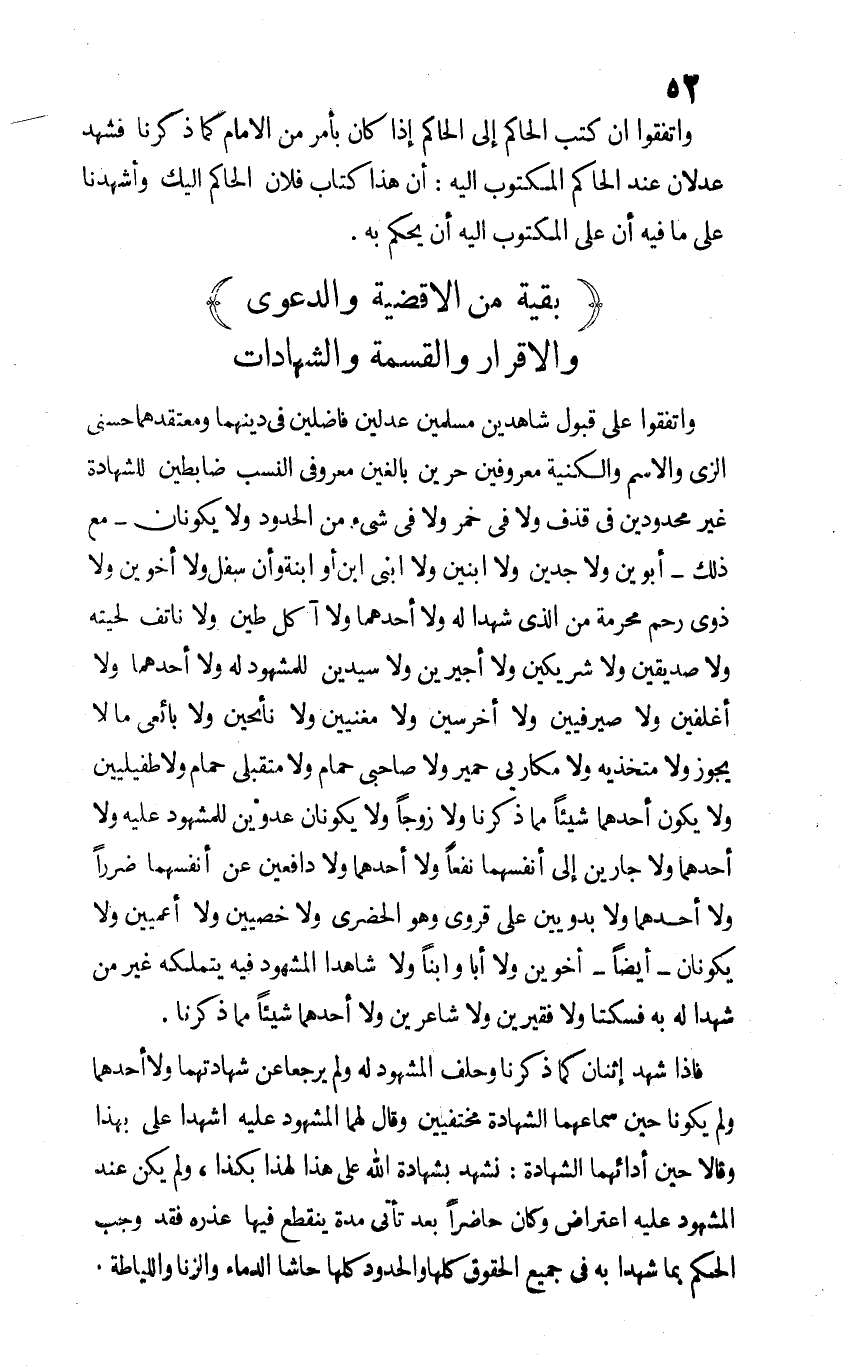 ٥٣
واتفقوا ان كتب الحاكم إلى الحاكم إذا كان بأمر من الامام كما ذكرنا فشهد
عدلان عند الحاكم المكتوب اليه : أن هذا كتاب فلان الحاكم اليك وأشهدنا
على ما فيه أن على المكتوب اليه أن يحكم به .
﴿ بقية من الاقضية والدعوى ﴾
والاقرار والقسمة والشهادات
واتفقوا على قبول شاهدين مسلمين عدلين فاضلين فى دينهما ومعتقدهما حسنى
الزى والاسم والكنية معروفين حرين بالغين معروفى النسب ضابطين للشهادة
غير محدودين فى قذف ولا فى خمر ولا فى شىء من الحدود ولا يكونان ــ مع
ذلك ــ أبوين ولا جدين ولا ابنين ولا ابنى ابن أو ابنة وأن سفل ولا أخوين ولا
ذوى رحم محرمة من الذى شهدا له ولا أحدهما ولا آكل طين ولا ناتف لحيته
ولا صديقين ولا شريكين ولا أجيرين ولا سيدين للمشهود له ولا أحدهما ولا
أغلفين ولا صيرفيين ولا أخرسين ولا مغنيين ولا نائحين ولا بائعى ما لا
يجوز ولا متخذيه ولا مكاربي حمير ولا صاحبى حمام ولا متقبلى حمام ولا طفيليين
ولا يكون أحدهما شيئاً مما ذكرنا ولا زوجاً ولا يكونان عدوين للمشهود عليه ولا
أحدهما ولا جارين إلى أنفسهما نفعاً ولا أحدهما ولا دافعين عن أنفسهما ضرراً
ولا أحدهما ولا بدويين على قروى وهو الحضرى ولا خصيين ولا أعميين ولا
يكونان ــ أيضاً ــ أخوين ولا أبا وابناً ولا شاهدا المشهود فيه يتملكه غير من
شهدا له به فسكتا ولا فقيرين ولا شاعرين ولا أحدهما شيئاً مما ذكرنا .
فاذا شهد إثنان كما ذكرنا وحلف المشهود له ولم يرجعا عن شهادتهما ولا أحدهما
ولم يكونا حين سماعهما الشهادة مختفيين وقال لهما المشهود عليه اشهدا على بهذا
وقالا حين أدائهما الشهادة : نشهد بشهادة الله على هذا لهذا بكذا ، ولم يكن عند
المشهود عليه اعتراض وكان حاضراً بعد تأتى مدة ينقطع فيها عذره فقد وجب
الحكم بما شهدا به فى جميع الحقوق كلها والحدود كلها حاشا الدماء والزنا واللياطة .